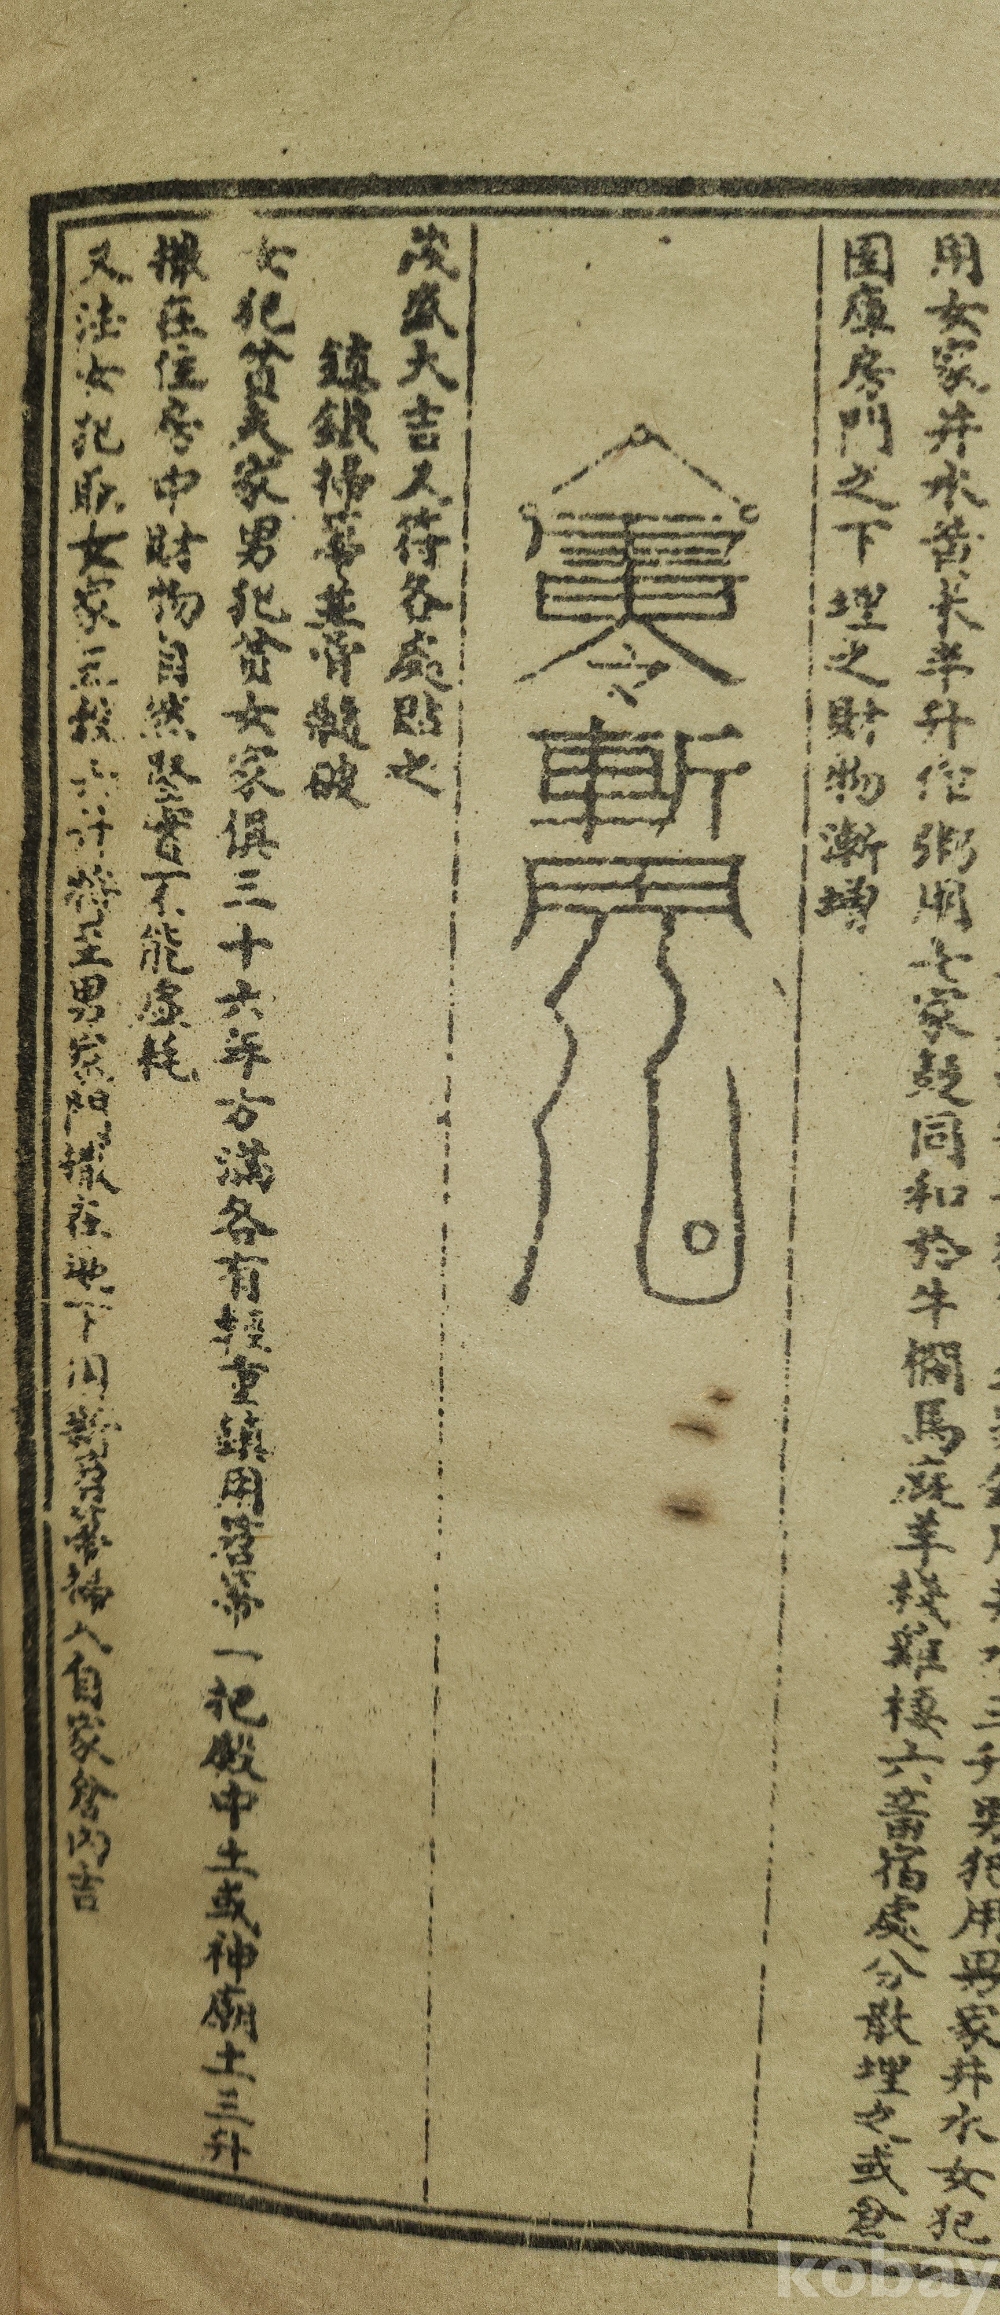 三升男犯用男家井水女犯
用女家井水苦米半升作粥用七家㪇同和於牛欄馬庭羊棧雞棲六畜宿處分散埋之或倉
囤庫房門之下埋之財物漸增
令斬
次歲大吉又符各處貼之
鎮鐵掃箒並骨髓破
女犯貧夫家男犯貧女家俱三十六年方滿各有輕重鎮用苕箒一把殿中土或神廟土三升
撒在住房中財物自然堅實不能虛耗
又法女犯取女家土 至男家門撒在地下用新苕箒掃入自家舍內吉
kobay